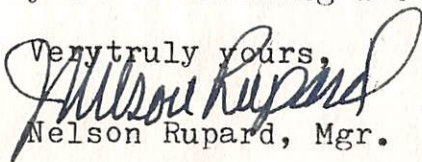 Verytruly yours,
Nelson Rupard
Nelson Rupard, Mgr.